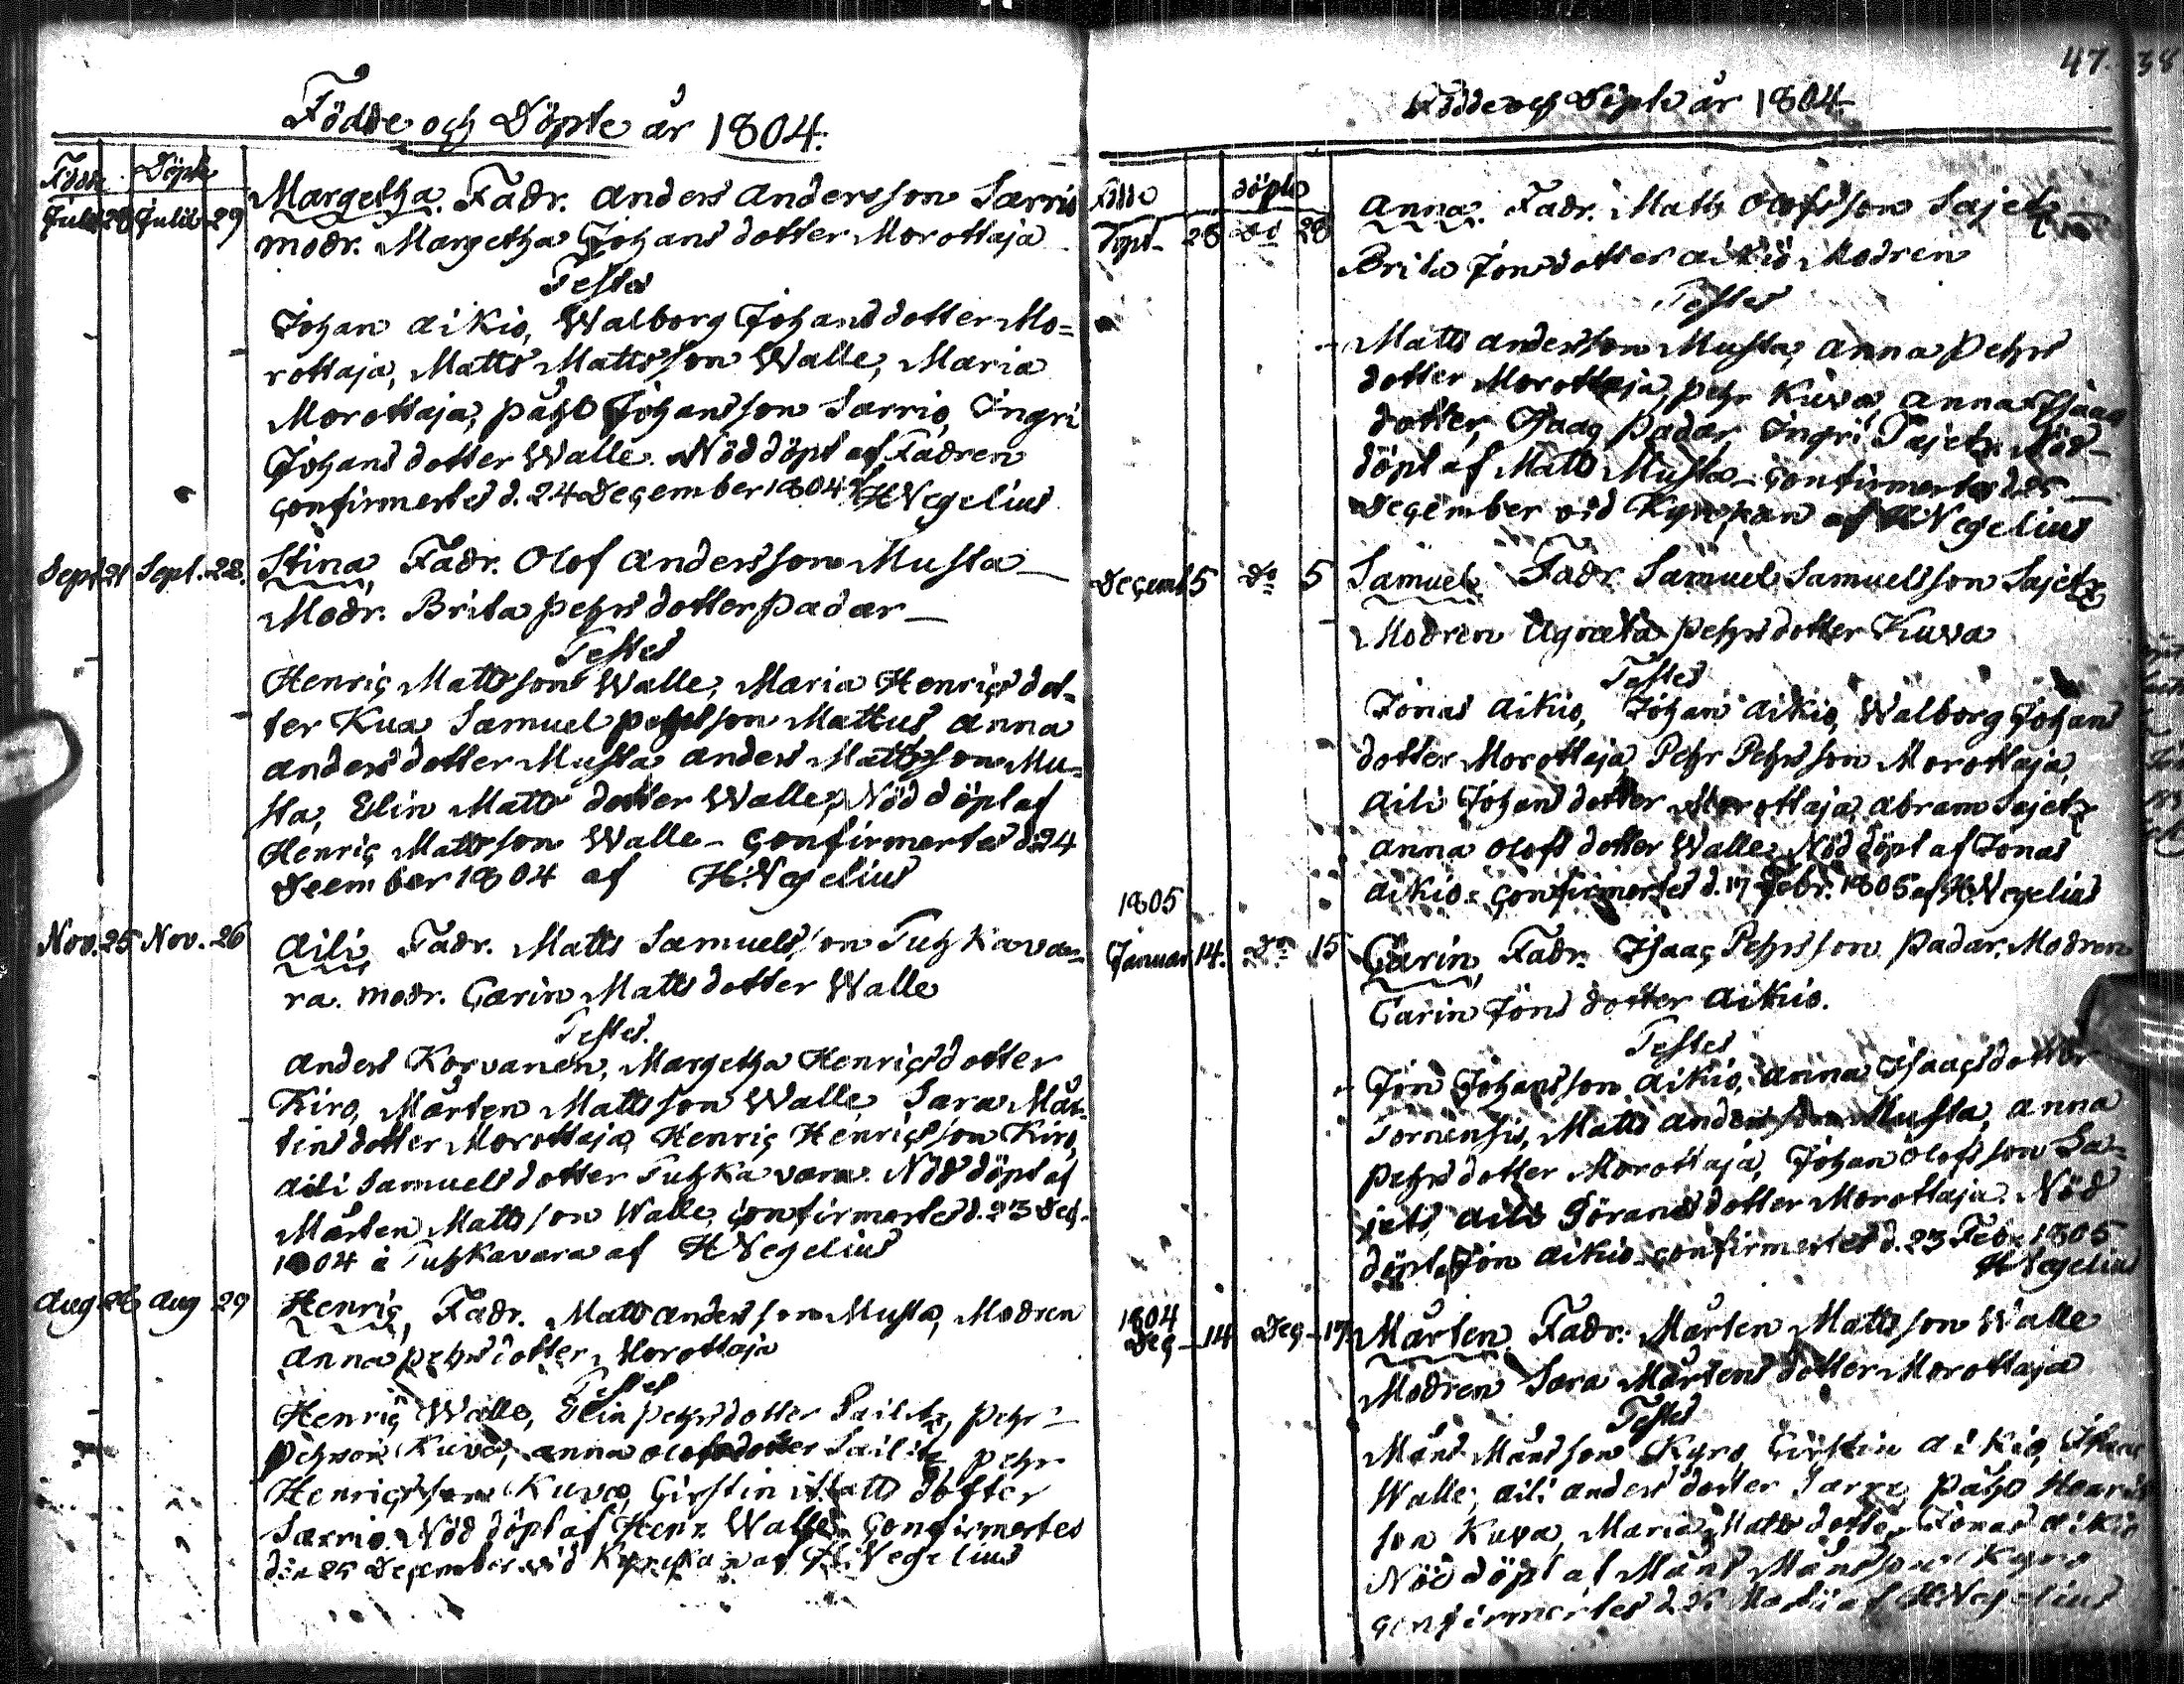 Födde och Döpte år 1804.
Födde Döpte
Julii 28 Julii 29 Margetha. Fadr. Anders Andersson Sarrio
modr. Margetha Johans dotter Morottaja
Testes
Johan Aikio, Walborg Johans dotter Mo=
rottaja, Matts Mattsson Walle, Maria
Morottaja, Påhl Johansson Sarrio, Ingri
Johans dotter Walle. Nöddöpt af Fadren
confirmertes d. 24 December 1804 HWegelius
Sept 21 Sept. 22. Stina, Fadr. Olof Andersson Musta
Modr. Brita Pehrs dotter Padar
Testes
Henric Mattsson Walle, Maria Henrics dot=
ter Kua, Samuel Pehrsson Mattus, Anna
Anders dotter Musta Anders Mattsson Mu=
sta, Elin Matts dotter Walle, Nöd döpt af
Henric Mattsson Walle - confirmertes d. 24
Deember 1804 af H.Wegelius
Nov. 25 Nov. 26 Aili, Fadr. Matts Samuelsson Tuhkava=
ra. modr. Carin Matts dotter Walle
Testes.
Anders Korvanen, Margetha Henrics dotter
Kiro, Mårten Mattsson Walle, Sara Mår=
tins dotter Morottaja, Henric Henricsson Kiro,
Aili Samuels dotter Tuhkavara. Nöd döpt af
Mårten Mattsson Walle, confirmertes d. 23 Dec.
1804 i Tuhkavara af HWegelius
Aug 26 Aug 29 Henric, Fadr. Matts Andersson Musta, Modren
Anna Pehrs dotter Morottaja
Testes
Henric Walle, Elin Pehrs dotter Sailitz, Pehr
Pehrson Kuva, Anna Olofs dotter Sailitz, Pehr
Henricsson Kuva, Cirstin Matts dotter
Sarrio. Nöd döpt af Henr. Walle. Confirmertes
den 25 December vid Kyrckan af H.Wegelius
47. 38
Födde och Döpte år 1804.
Födde döpte
Sept. 28 do 28 Anna. Fadr. Matts Olofsson Sajetz
Brita Jons dotter Aikio Modren
Testes
Matts Andersson Musta, Anna Pehrs
dotter Morottaja, Pehr Kuva, Anna Isaacs
dotter, Isaac Padar, Ingri Sajetz. Nöd-
döpt af Matts Musta - confirmertes d. 25
December vid Kyrckan af HWegelius
Decemb 5 do 5 Samuel, Fadr. Samuel Samuelsson Sajetz
Modren Agneta Pehrs dotter Kuva
Testes
Jonas Aikio, Johan Aikio, Walborg Johans
dotter Morottaja, Pehr Pehrsson Morottaja,
Aili Johans dotter Morottaja, Abram Sajetz
Anna Olofs dotter Walle, Nöd döpt af Jonas
Aikio - confirmertes d. 17 Febr. 1805 af H.Wegelius
1805
Januar 14. do 15 Carin, Fadr. Isaac Pehrsson Padar, Modren
Carin Jons dotter Aikio.
Testes
Jon Johansson Aikio, Anna Isaacs dotter
Tornensis, Matts Andersson Musta, Anna
Pehrs dotter Morottaja, Johan Olofsson Sa=
jets, Aili Görans dotter Morottaja. Nöd
döpt af Jon Aikio - confirmertes d. 23 Feb. 1805
HWegelius
1804
Dec 14 Dec 17 Mårten, Fadr. Mårten Mattsson Walle
Modren Sara Mårtens dotter Morottaja
Testes
Måns Månsson Kyro, Cirstin Aikio,
Walle, Aili Anders dotter Sarre, Påhl Henrics
son Kuva, Maria Matts dotter, Jonas Aikio
Nöd döpt af Måns Månsson Kyro
confirmertes d. 26 Martii af HWegelius